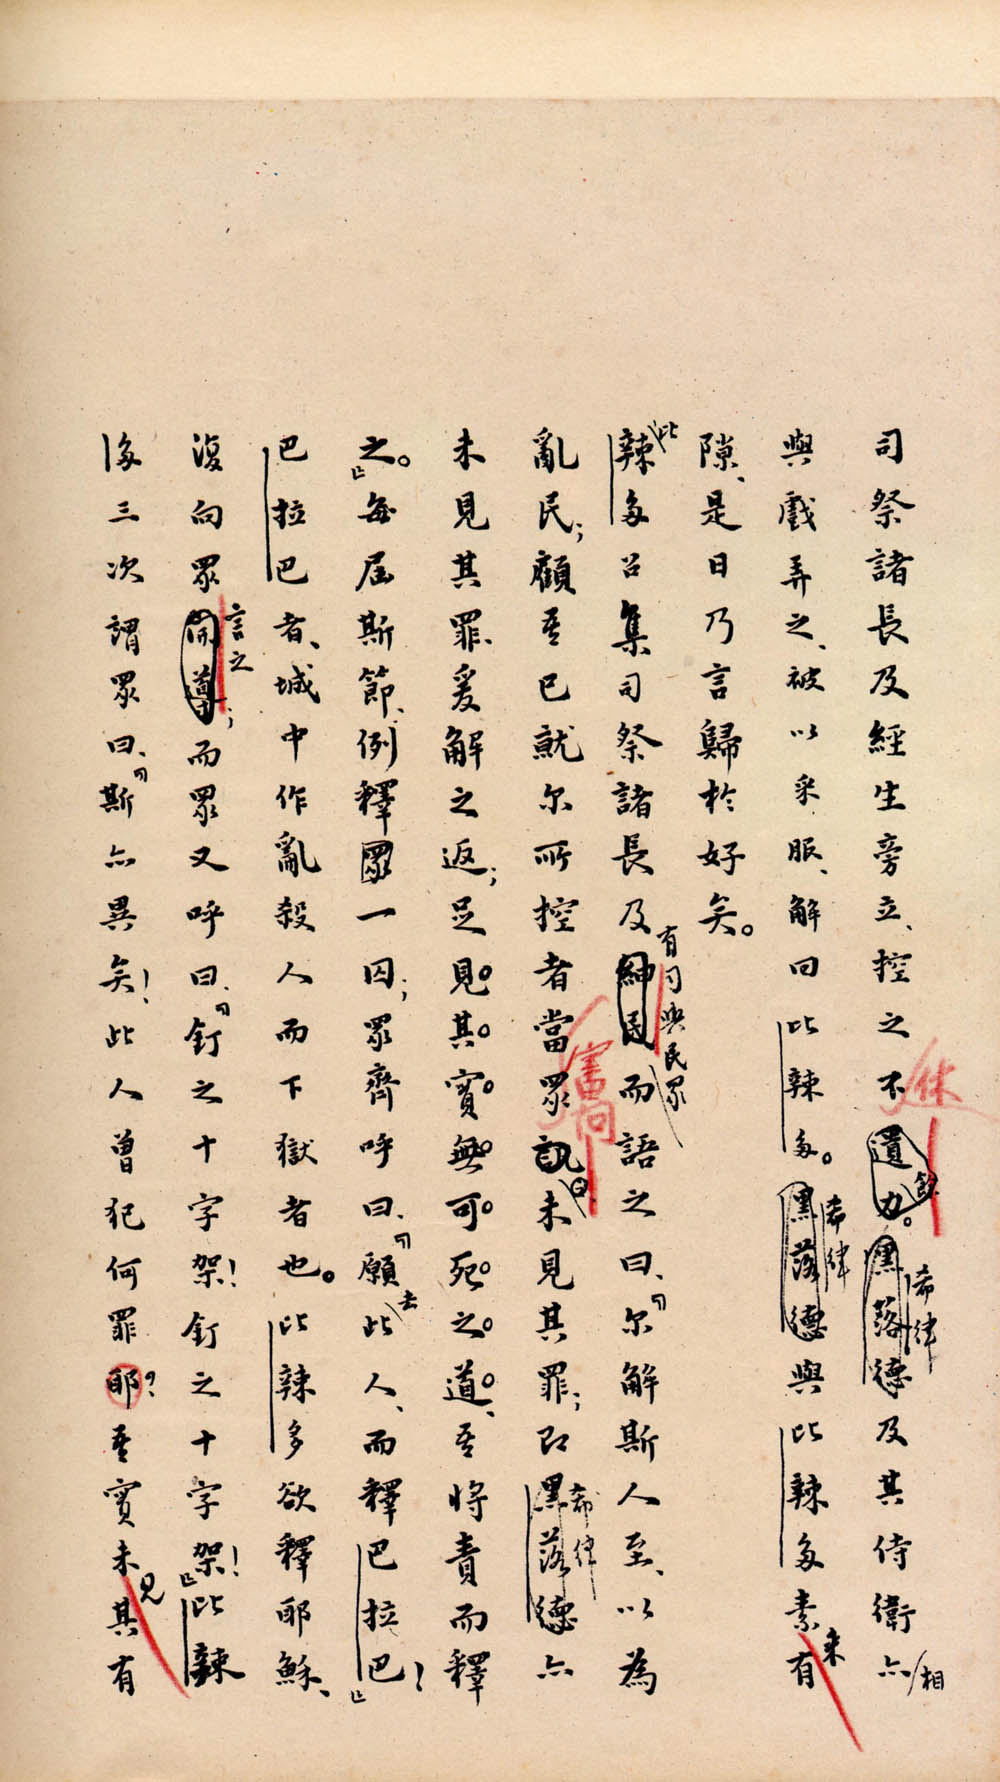 司祭諸長及經生旁立、控之不遺力。黑落德及其侍衛亦
休
餘
希律
相
與戲弄之、被以采服、解回比辣多。黑落德與比辣多素有
希律
來
隙、是日乃言歸於好矣。
比
辣多召集司祭諸長及紳民而語之曰、「尔解斯人至、以為
有司與民眾
亂民；顧吾已就尔所控者當眾訊未見其罪；即黑落德亦
審問
曰
希律
未見其罪、爰解之返；足見其實無可死之道、吾將責而釋
之。」每屆斯節、例釋眾一囚；眾齊呼曰、「願此人、而釋巴拉巴！」
去
巴拉巴者、城中作亂殺人而下獄者也。比辣多欲釋耶穌、
復向眾開導；而眾又呼曰、「釘之十字架！釘之十字架！」比辣
言之
多三次謂眾曰、「斯亦異矣！此人曾犯何罪耶？吾實未其有
見